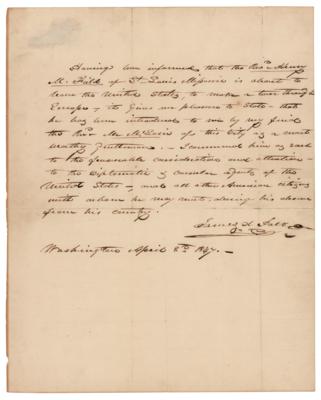 Having been informed that the Rev.d Henry
M. Field of St Louis Missouri is about to
leave the United States, to make a tour through
Europe, it gives me pleasure to state that
he has been introduced to me by my friend
the Rev.d Mr of this City as a most
worthy gentleman. I commend him as such
to the favourable consideration and attention
to the diplomatic & consular agents of the
United States and all other American citizens
with whom he may meet, during his absence
from his country.
James K. Polk
Washington April 8th 1847.